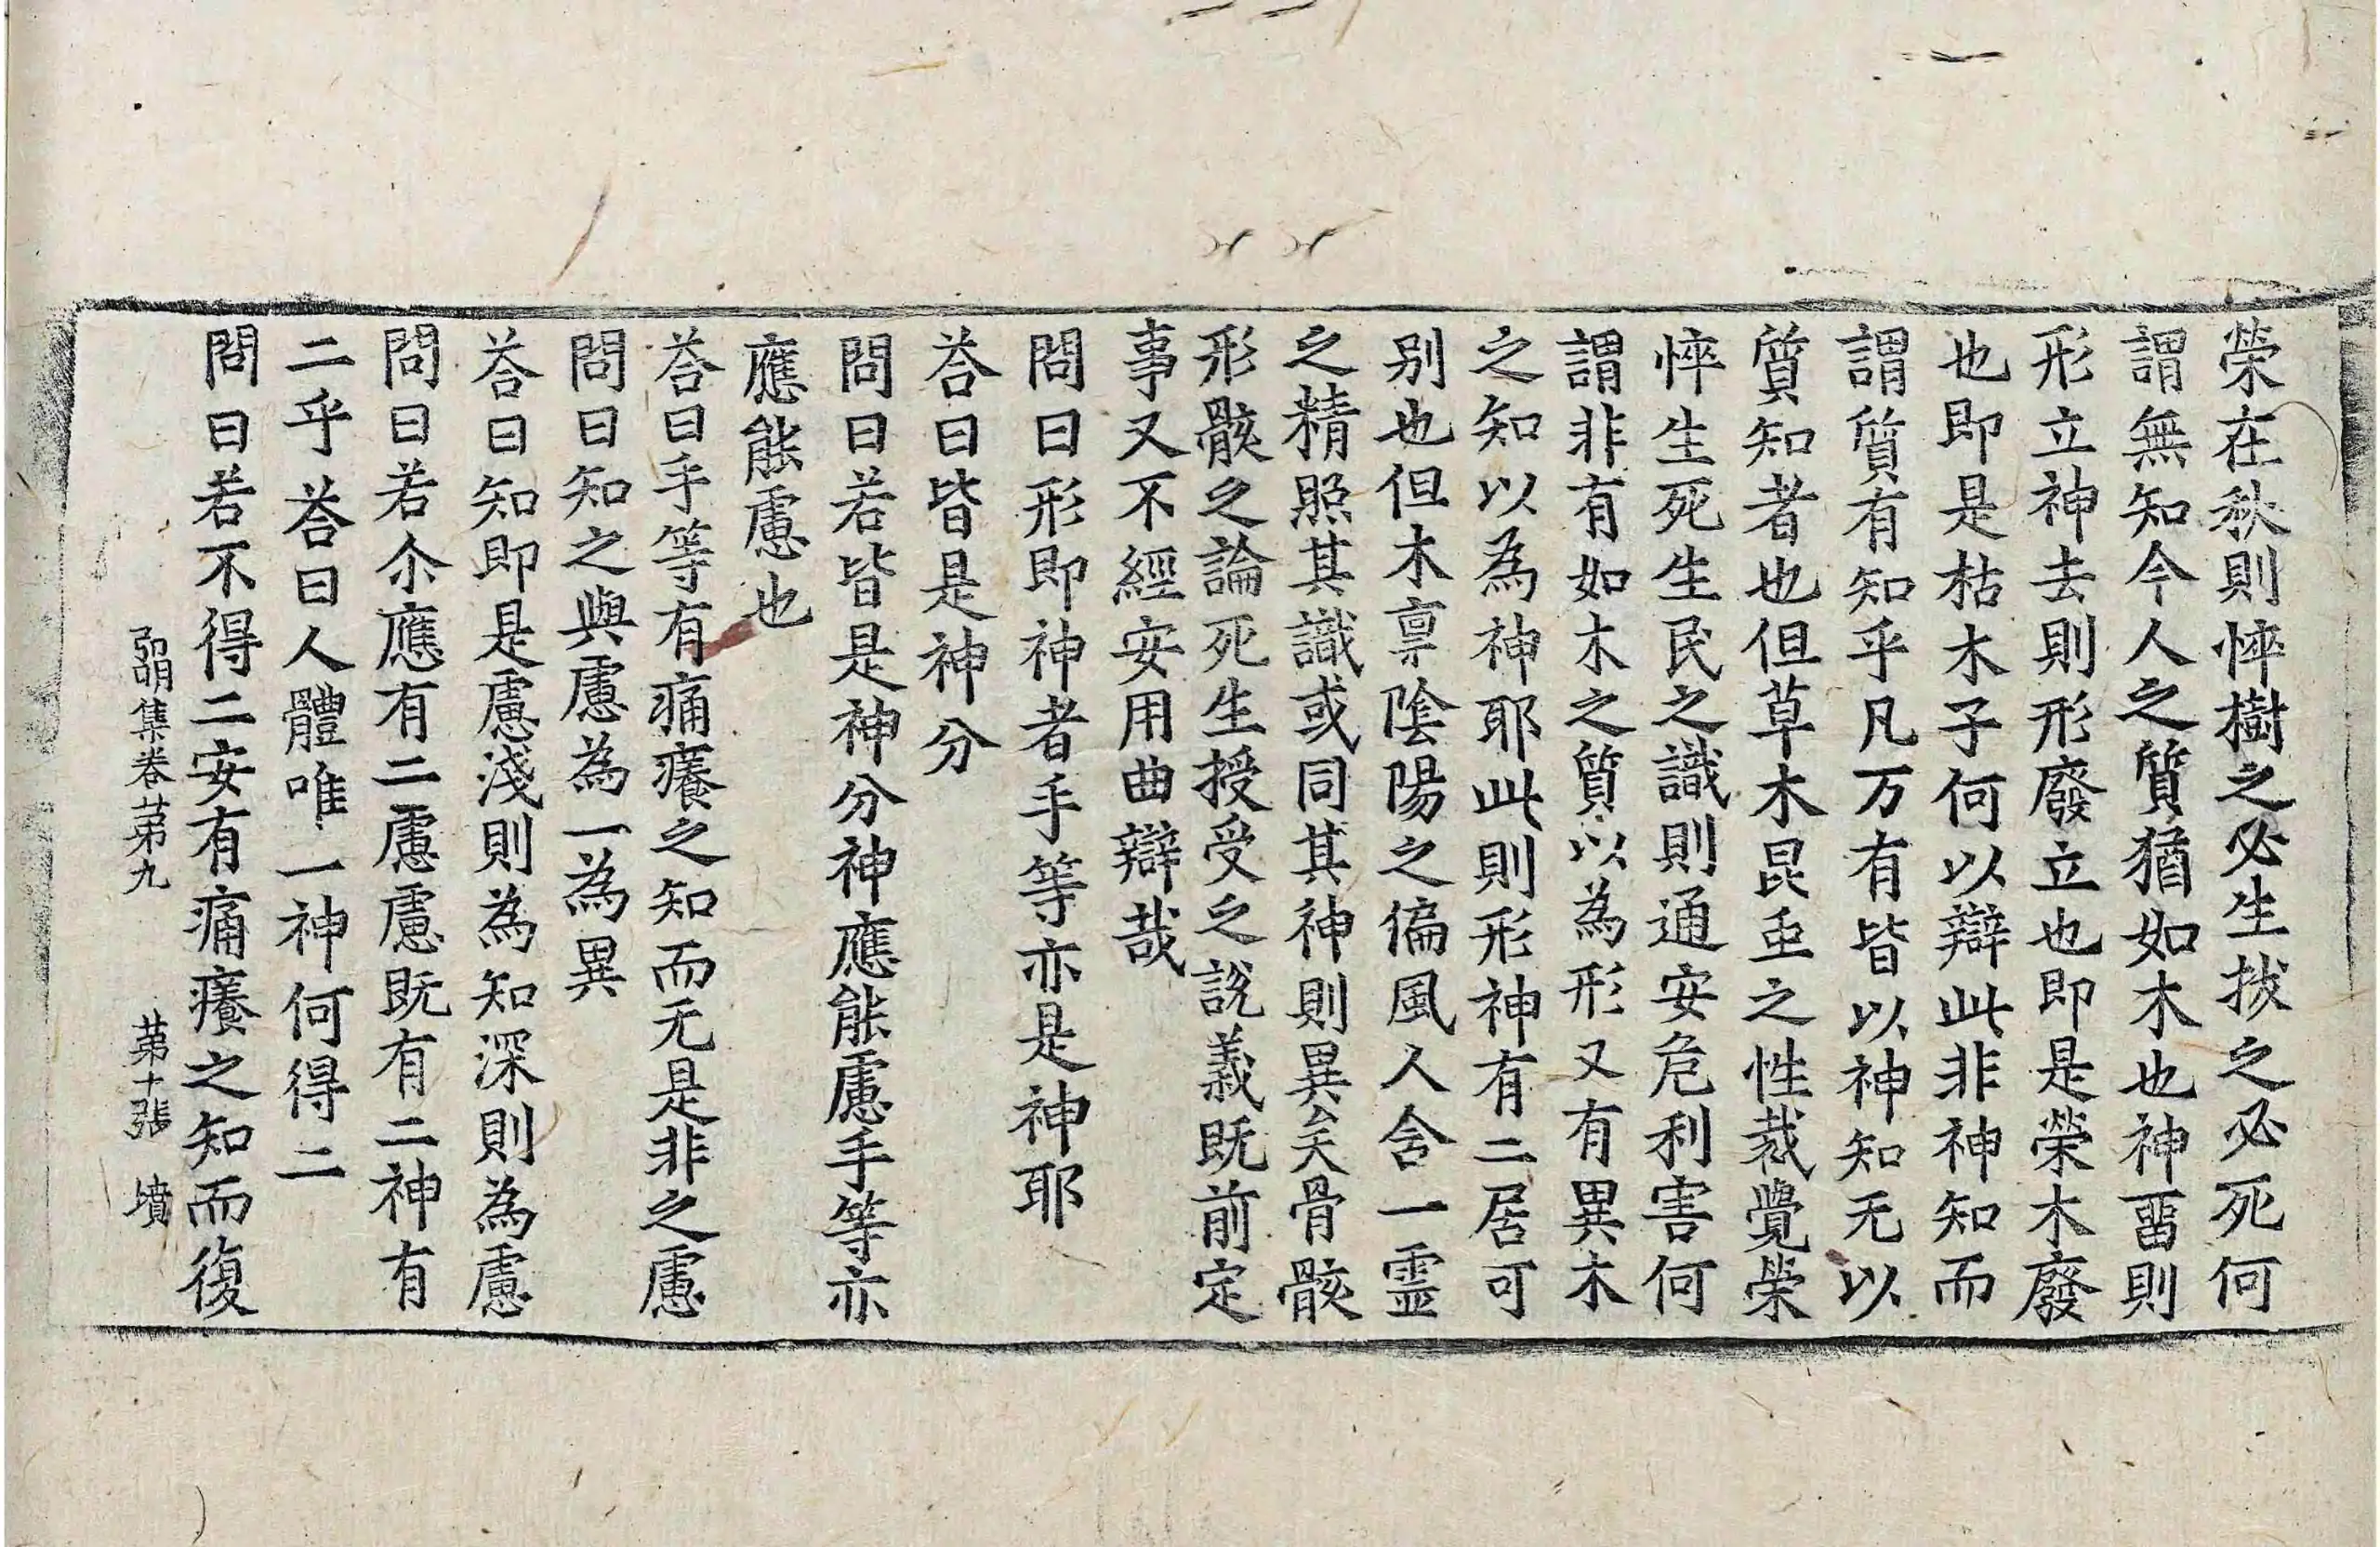 榮在秋則悴樹之必生拔之必死何
謂無知今人之質猶如木也神畱則
形立神去則形廢立也即是榮木廢
也即是枯木子何以辯此非神知而
謂質有知乎凡万有皆以神知无以
質知者也但草木昆虫之性裁覺榮
悴生死生民之識則通安危利害何
謂非有如木之質以為形又有異木
之知以為神耶此則形神有二居可
别也但木禀陰陽之偏風人含一靈
之精照其識或同其神則異矣骨骸
形骸之論死生授受之說義既前定
事又不經安用曲辯哉
問曰形即神者手等亦是神耶
荅曰皆是神分
問曰若皆是神分神應能慮手等亦
應能慮也
荅曰手等有痛癢之知而无是非之慮
問曰知之與慮為一為異
荅曰知即是慮淺則為知深則為慮
問曰若尒應有二慮慮既有二神有
二乎荅曰人體唯一神何得二
問曰若不得二安有痛癢之知而復
弘明集卷苐九 苐十張 墳